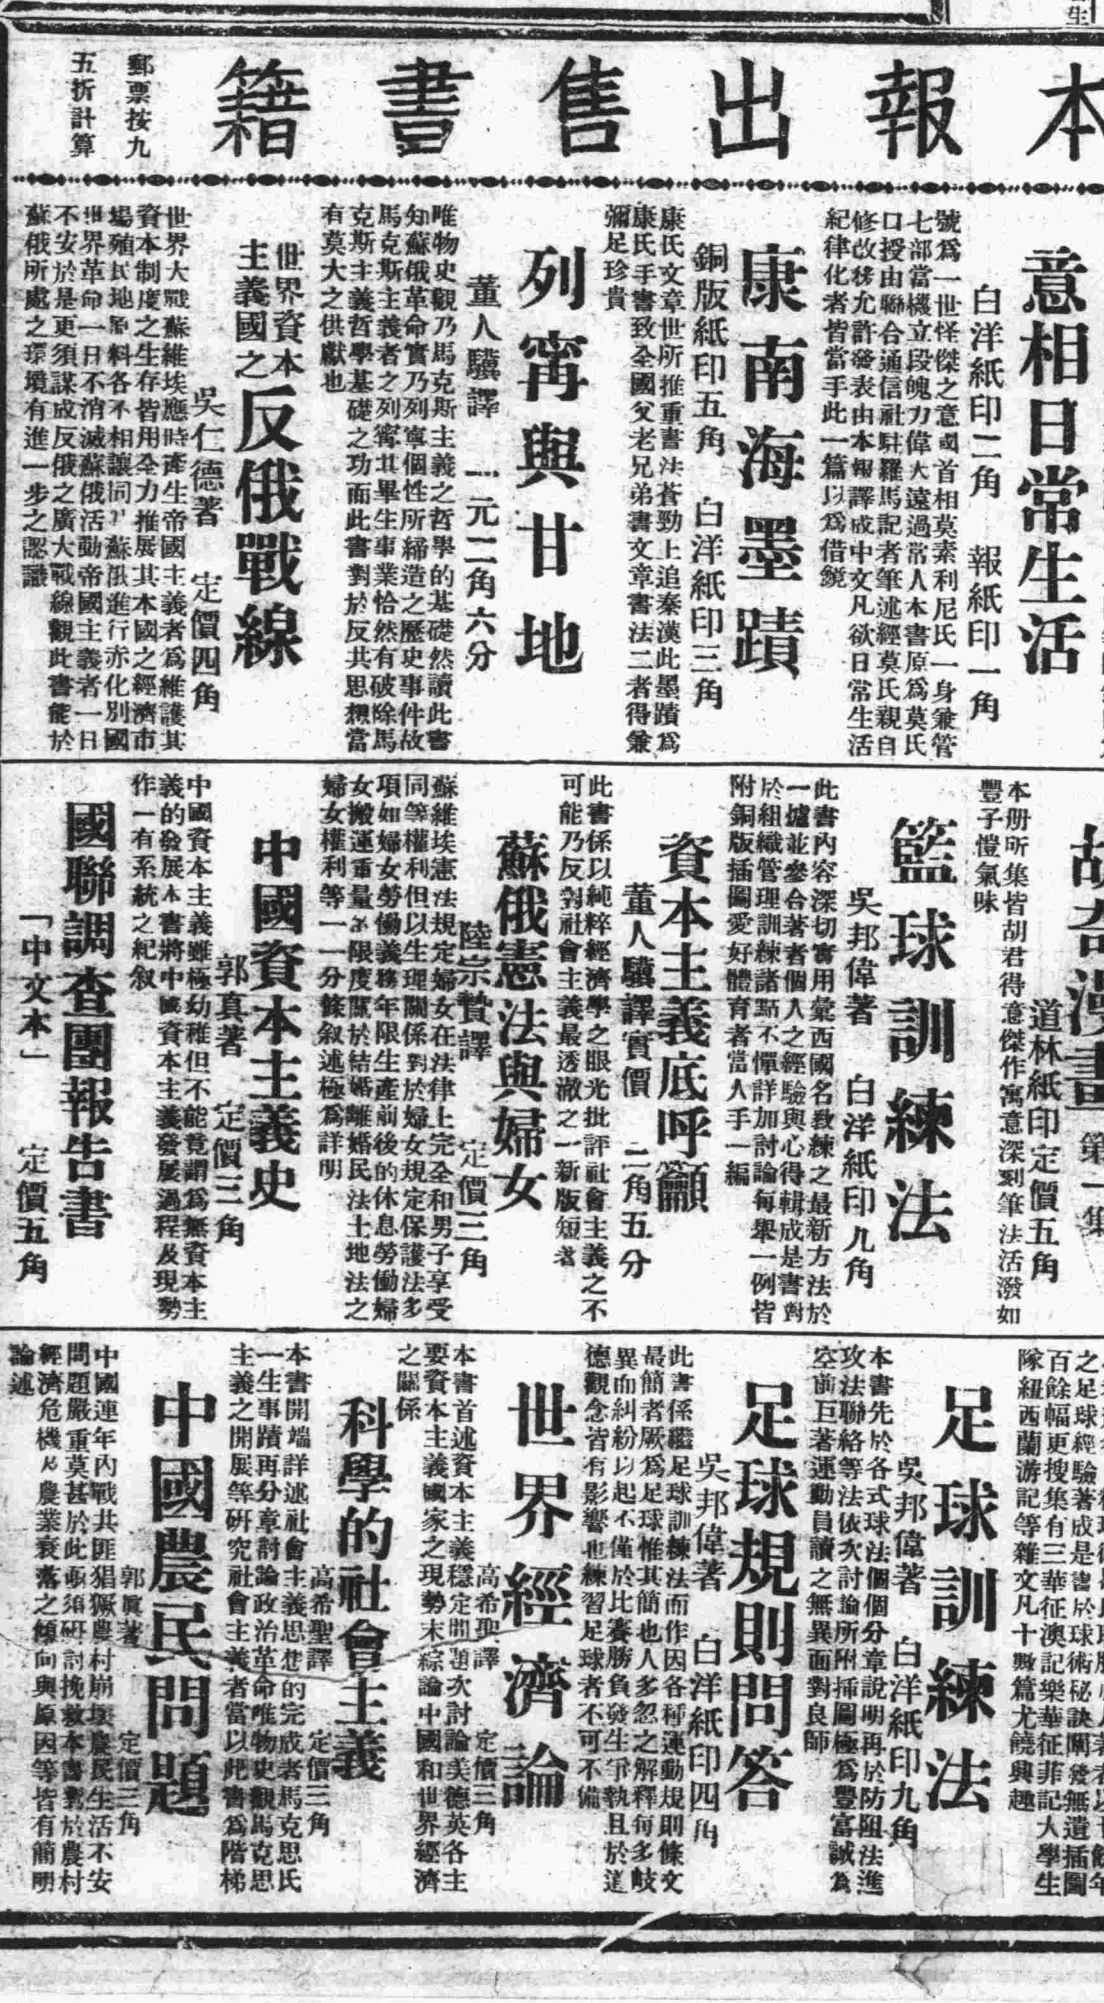 本報出售書籍
郵票按九
五折計算
意相日常生活
白洋紙印二角　報紙印一角
號爲一世怪傑之意國首相莫素利尼氏一身兼管
七部當機立段魄力偉大遠過常人本書原爲莫氏
口授由聯合通信社駐羅馬記者筆述經莫氏親自
修改移允許發表由本報譯成中文凡欲日常生活
紀律化者皆當手此一篇以爲借鏡
康南海墨蹟
銅版紙印五角　白洋紙印三角
康氏文章世所推重書法蒼勁上追秦漢此墨蹟爲
康氏手書致全國父老兄弟書文章書法二者得兼
彌足珍貴
列甯與甘地
董人驥譯　一元二角六分
唯物史觀乃馬克斯主義之哲學的基礎然讀此書
知蘇俄革命實乃列寧個性所締造之歷史事件故
馬克斯主義者之列寗其畢生事業恰然有破除馬
克斯主義哲學基礎之功而此書對於反共思想當
有莫大之供獻也
世界資本
主義國之
反俄戰線
吳仁德著　定價四角
世界大戰蘇維埃應時產生帝國主義者爲維護其
資本制度之生存皆用全力推展其本國之經濟市
場殖民地原料各不相讓同時蘇俄進行赤化別國
世界革命一日不消滅蘇俄活動帝國主義者一日
不安於是更須謀成反俄之廣大戰線觀此書能於
蘇俄所處之環境有進一步之認識
第一集
道林紙印定價五角
本册所集皆胡君得意傑作寓意深刻筆法活潑如
豐子愷氣味
籃球訓練法
吳邦偉著　白洋紙印九角
此書內容深切實用彙西國名教練之最新方法於
一爐並參合著者個人之經驗與心得輯成是書對
於組織管理訓練諸點不憚詳加討論每舉一例皆
附銅版插圖愛好體育者當人手一編
資本主義底呼籲
董人驥譯實價　二角五分
此書係以純粹經濟學之眼光批評社會主義之不
可能乃反對社會主義最透澈之一新版短著
蘇俄憲法與婦女
陸宗贄譯　定價三角
蘇維埃憲法規定婦女在法律上完全和男子享受
同等權利但以生理關係對於婦女規定保護法多
項如婦女勞働義務年限生產前後的休息勞働婦
女搬運重量的限度關於結婚離婚民法土地法之
婦女權利等一一分條叙述極爲詳明
中國資本主義史
郭真著　定價三角
中國資本主義雖極幼稚但不能竟謂爲無資本主
義的發展本書將中國資本主義發展過程及現勢
作一有系統之紀叙
國聯調查團報告書
「中文本」　定價五角
之足球經驗著成是書於球術秘訣闡發無遺插圖
百餘幅更搜集有三華征澳記樂華征菲記大學生
隊紐西蘭游記等雜文凡十數篇尤饒興趣
足球訓練法
吳邦偉著　白洋紙印九角
本書先於各式球法個個分章說明再於防阻法進
攻法聯絡等法依次討論所附插圖極爲豐富誠爲
空前巨著運動員讀之無異面對良師
足球規則問答
吳邦偉著　白洋紙印四角
此書係繼足球訓練法而作因各種運動規則條文
最簡者厥爲足球惟其簡也人多忽之解釋每多歧
異而糾紛以起不僅於比賽勝負發生爭執且於道
德觀念皆有影響也練習足球者不可不備
世界經濟論
高希聖譯　定價三角
本書首述資本主義穩定問題次討論美德英各主
要資本主義國家之現勢末綜論中國和世界經濟
之關係
科學的社會主義
高希聖譯　定價三角
本書開端詳述社會主義思想的完成者馬克思氏
一生事蹟再分章討論政治革命唯物史觀馬克思
主義之開展等研究社會主義者當以此書爲階梯
中國農民問題
郭眞著　定價三角
中國連年內戰共匪猖獗農村崩壞農民生活不安
問題嚴重莫甚於此亟須研討挽救本書對於農村
經濟危機及農業衰落之傾向與原因等皆有簡明
論述